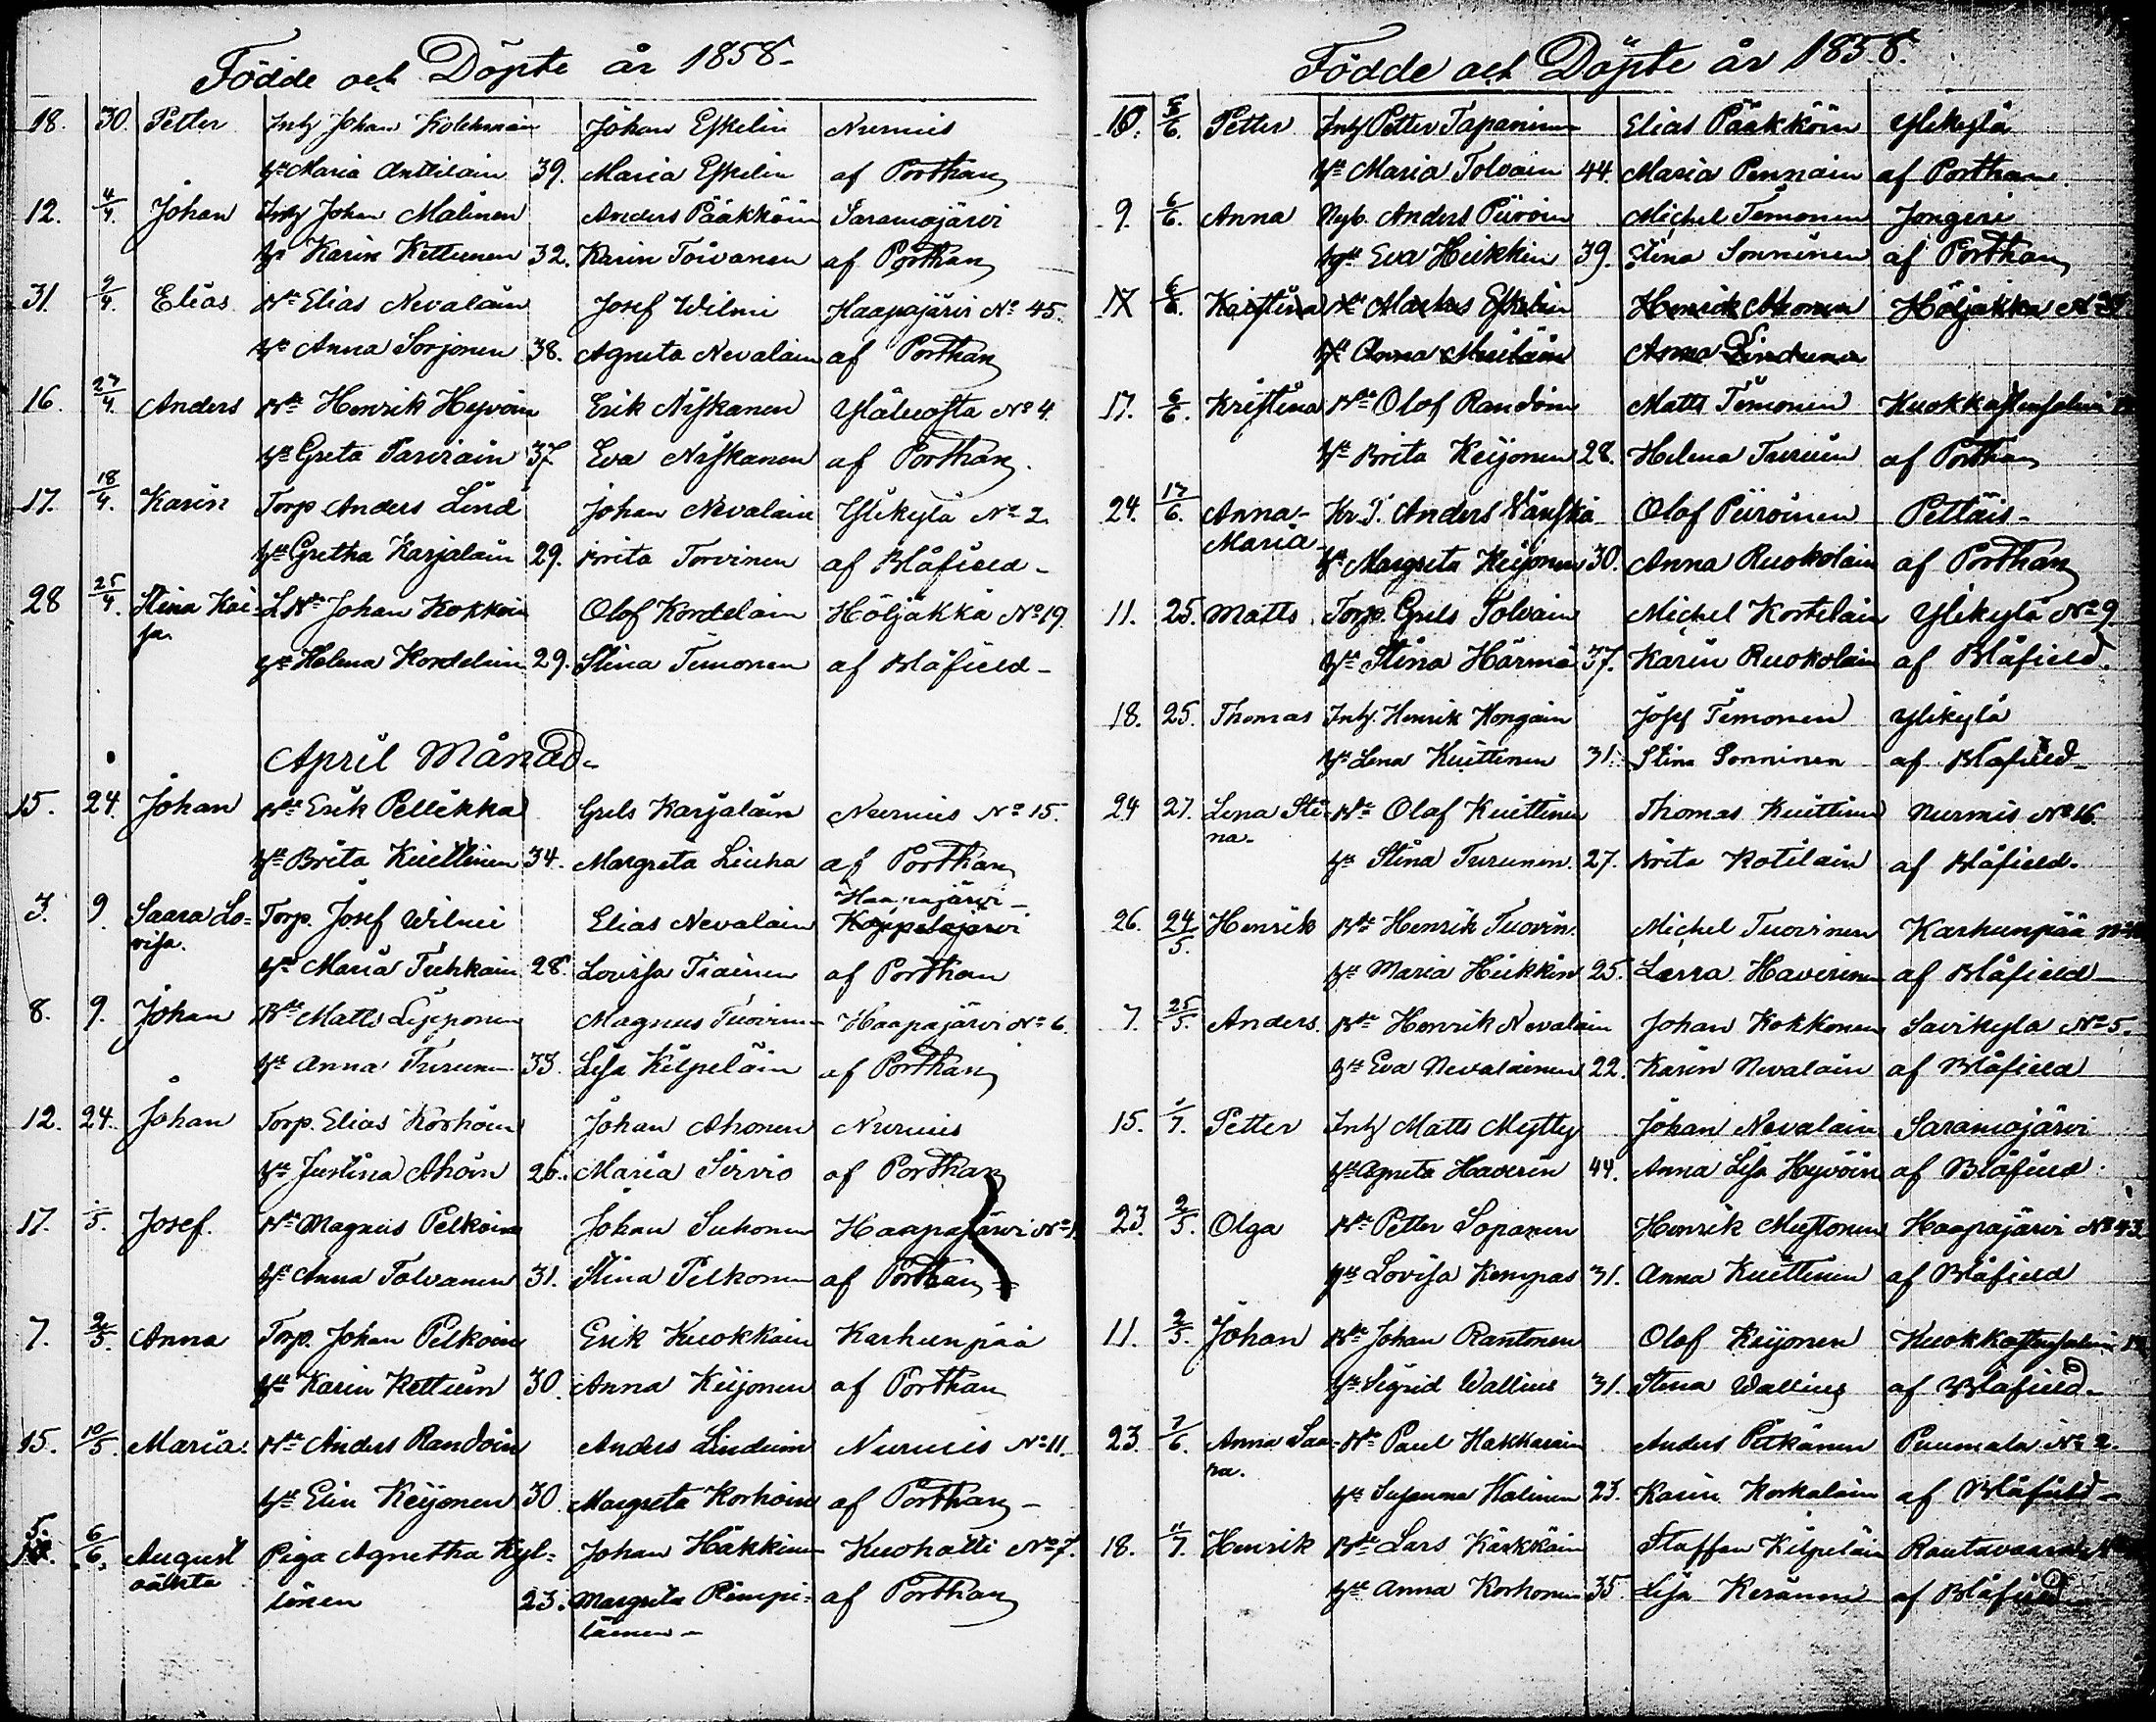 Födde och Döpte år 1858.
18. 30. Petter Inh Johan Kolehmain Johan Eskelin Nurmis
hu Maria Antilain 39. Maria Eskelin af Porthan
12. 4/4. Johan Inh Johan Malinen Anders Pääkköin Saramojärvi
hu Karin Kettunen 32. Karin Toivanen af Porthan
31. 9/4. Elias Bde Elias Nevalain Josef Wilmi Haapajärvi No 45.
hu Anna Sorjonen 38. Agneta Nevalain af Porthan
16. 27/4. Anders Bde Henrik Hyvöin Erik Niskanen Yläluosta No 4.
hu Greta Parviain 37 Eva Niskanen af Porthan.
17. 18/4. Karin Torp Anders Lind Johan Nevalain Ylikylä No 2.
hu Gretha Karjalain 29. Brita Torvinen af Blåfield
28 25/4. Stina Kai- L Bde Johan Kokkoin Olof Kordelain Höljäkkä No 19.
sa
hu Helena Kordelain 29. Stina Timonen af Blåfield
April Månad
15. 24. Johan Bde Erik Pellikka Grels Karjalain Nurmis No 15.
hu Brita Kuittinen 34. Margreta Liuha af Porthan
Haapajärvi
3. 9. Saara Lo= Torp. Josef Wilmi Elias Nevalain
visa.
hu Maria Tuhkain 28. Lovisa Tiainen af Porthan
8. 9. Johan Bde Matts Lipponen Magnus Tuovinen Haapajärvi No 6.
hu Anna Turunen 33. Lisa Kilpeläin af Porthan
12. 24. Johan Torp. Elias Korhoin Johan Ahonen Nurmis
hu Justina Ahoin 26. Maria Sirvio af Porthan
17. /5. Josef. Bde Magnus Pelkoin Johan Suhonen Haapajärvi No
hu Anna Tolvanen 31. Stina Pelkonen af Porthan
7. 2/5. Anna Torp. Johan Pelkoin Erik Kuokkain Karhunpää
hu Karin Kettuin 30. Anna Keijonen af Porthan
15. 10/5. Maria Bde Anders Randoin Anders Linduin Nurmis No 11.
hu Elin Keijonen 30. Margreta Korhoin af Porthan
5. 6/6. August Piga Agnetha Kyl= Johan Häkkinen Kuohatti No 7.
oäkta lönen 23. Margreta Rimpi= af Porthan
läinen
Födde och Döpte år 1858.
10. 5/6. Petter Inh Petter Tapaninen Elias Pääkköin Ylikylä
hu Maria Tolvain 44. Maria Pennain af Porthan.
9. 6/6. Anna Nyb. Anders Piiroin Michel Timonen Jongeri
hu Eva Heikkin 39. Stina Sonninen af Porthan
17 6/6. Kristina Bde Markus Eskelin Henrik Ahonen Höljäkkä No
hu Anna Meiläin Anna Lindunen
17. 6/6. Kristina Bde Olof Randoin Matts Timonen Kuokkastensalmi
hu Brita Keijonen 28. Helena Turuin af Porthan
24. 17/6. Anna- Kr. T. Anders Wänskä Olof Piiroinen Pettäis
Maria
hu Margreta Keijonen 30. Anna Ruokolain af Porthan
11. 25. Matts Torp. Grels Tolvain Michel Kortelain Ylikylä No 9
hu Stina Härmä 37. Karin Ruokolain af Blåfield.
18. 25. Thomas Inh. Henrik Hongain Josef Timonen Ylikylä
hu Lena Kuittinen 31. Stina Sonninen af Blåfield
24 27. Lena Sti- Bde Olof Kuittinen Thomas Kuittinen Nurmis No 16.
na.
hu Stina Turunen 27. Brita Kotilain af Blåfield.
26. 24/5. Henrik Bde Henrik Tuovin. Michel Tuovinen Karhunpää No
hu Maria Heikkin 25. Laura Haverinen af Blåfield
7. 25/5. Anders. Bde Henrik Nevalain Johan Kokkonen Savikylä No 5.
hu Eva Nevalainen 22. Karin Nevalain af Blåfield
15. /7. Petter Inh Matts Mytty Johan Nevalain Saramojärvi
hu Agneta Haverin 44. Anna Lisa Hyvöin af Blåfield.
23. 2/5. Olga Bde Petter Sopanen Henrik Mustonen Haapajärvi No 43
hu Lovisa Kempas 31. Anna Kuittinen af Blåfield
11. 2/5. Johan Bde Johan Rantonen Olof Keijonen Kuokkastensalmi
hu Sigrid Wallius 31. Stina Wallius af Blåfield
23. 7/6. Anna Saa- Bde Paul Hakkarain Anders Pitkänen Puumala No 2.
ra.
hu Susanna Halinen 23. Karin Korkalain af Blåfield
18. 11/7. Henrik Bde Lars Kärkkäin Staffan Kilpeläin Rautavaara No
hu Anna Korhonen 35. Lisa Keränen af Blåfield